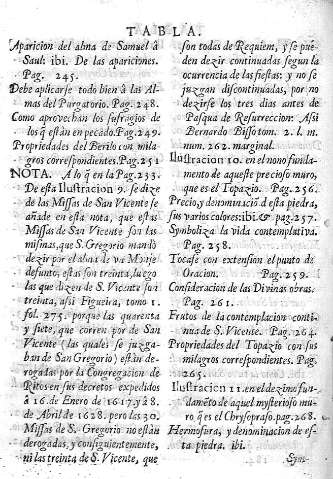 TABLA.
Aparicion del alma de Samuel â
Saul: ibi. De las apariciones.
Pag. 245.
Debe aplicarse todo bien â las Al-
mas del Purgatorio. Pag. 248.
Como aprovechan los sufragios de
los q̃ están en pecado. Pag. 249.
Propriedades del Berilo con mila
gros correspondientes. Pag. 251
NOTA. A lo q̃ en la Pag. 233.
De esta Ilustracion 9. se dize
de las Missas de San Vicente se
añade en esta nota, que estas
Missas de San Vicente son las
mismas, que S. Gregorio mandò
dezir por el alma de un Monje
defunto, estas son treinta, luego
las que dizen de S. Vicente son
treinta, assi Figueira, tomo 1.
fol. 275. porque las quarenta
y siete, que corren por de San
Vicente (las quales se juzga-
ban de San Gregorio) están de-
rogadas por la Congregacion de
Ritos en sus decretos expedidos
â 16. de Enero de 1617. y 28.
de Abril de 1628. pero las 30.
Missas de S. Gregorio no están
derogadas, y consiguientemente,
ni las treinta de S. Vicente, que
son todas de Requiem, y se pue-
den dezir continuadas segun la
ocurrencia de las fiestas: y no se
juzgan discontinuadas, por no
dezirse los tres dias antes de
Pasqua de Resurreccion: Assi
Bernardo Bissotom. 2. l. m.
num. 262. marginal.
Ilustracion 10. en el nono funda-
mento de aqueste precioso muro,
que es el Topazio. Pag. 256.
Precio, y denominaciõ d esta piedra,
sus varios colores ibi. & pag. 257.
Symboliza la vida contemplativa.
Pag. 258.
Tocase con extension el punto de
Oracion. Pag. 259.
Consideracion de las Divinas obras.
Pag. 261.
Frutos de la contemplacion conti-
nua de S. Vicente. Pag. 264.
Propriedades del Topazio con sus
milagros correspondientes. Pag.
265.
Ilustracion 11. en el dezimo fun-
damẽto de aquel mysterioso mu-
ro q̃ es el Chrysopraso. pag. 268.
Hermosura, y denominacion de es-
ta piedra. ibi.
Sym-